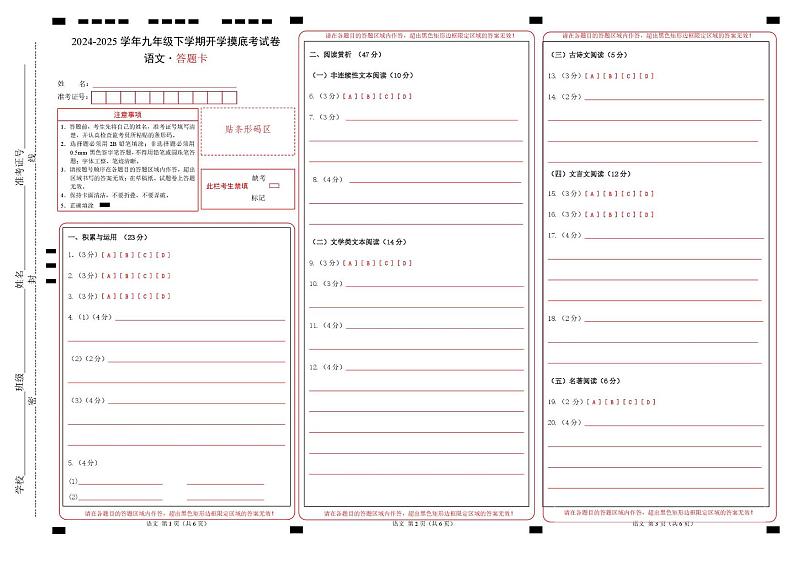 2024-2025 学年九年级下学期开学摸底考试卷
语文·答题卡
姓 名：
准考证号：
注意事项
1．答题前，考生先将自己的姓名，准考证号填写清
楚，并认真检查监考员所粘贴的条形码。
2．选择题必须用 2B 铅笔填涂；非选择题必须用
0.5mm 黑色签字笔答题，不得用铅笔或圆珠笔答
题；字体工整、笔迹清晰。
3．请按题号顺序在各题目的答题区域内作答，超出
区域书写的答案无效；在草稿纸、试题卷上答题
无效。
4．保持卡面清洁，不要折叠、不要弄破。
5．正确填涂
贴条形码区
此栏考生禁填
缺考
标记
准考证号
姓名
班级
学校
线
封
密
一、积累与运用 （23 分）
1．（3 分）[ A ] [ B ] [ C ] [ D ]
2.（3 分）[ A ] [ B ] [ C ] [ D ]
3.（3 分）[ A ] [ B ] [ C ] [ D ]
4.（1)（4 分）
（2)（2 分）
（3)（4 分）
5.（4分）
(1)
(2)
请在各题目的答题区域内作答，超出黑色矩形边框限定区域的答案无效！
语文 第 1 页（共 6 页）
请在各题目的答题区域内作答，超出黑色矩形边框限定区域的答案无效！
二、阅读赏析 （47 分）
（一）非连续性文本阅读（10 分）
6.（3 分）[ A ] [ B ] [ C ] [ D ]
7.（3 分）
8.（4 分）
（二）文学类文本阅读（14 分）
9.（3 分）[ A ] [ B ] [ C ] [ D ]
10.（3分）
11.（4分）
12.（4分）
请在各题目的答题区域内作答，超出黑色矩形边框限定区域的答案无效！
语文 第 2 页（共 6 页）
请在各题目的答题区域内作答，超出黑色矩形边框限定区域的答案无效！
（三）古诗文阅读（5 分）
13.（3 分）[ A ] [ B ] [ C ] [ D ]
14.（2分）
（四）文言文阅读（12 分）
15.（3 分）[ A ] [ B ] [ C ] [ D ]
16.（3 分）[ A ] [ B ] [ C ] [ D ]
17.（4分）
18.（2分）
（五）名著阅读（6 分）
19.（2 分）[ A ] [ B ] [ C ] [ D ]
20.（4分）
请在各题目的答题区域内作答，超出黑色矩形边框限定区域的答案无效！
语文 第 3 页（共 6 页）